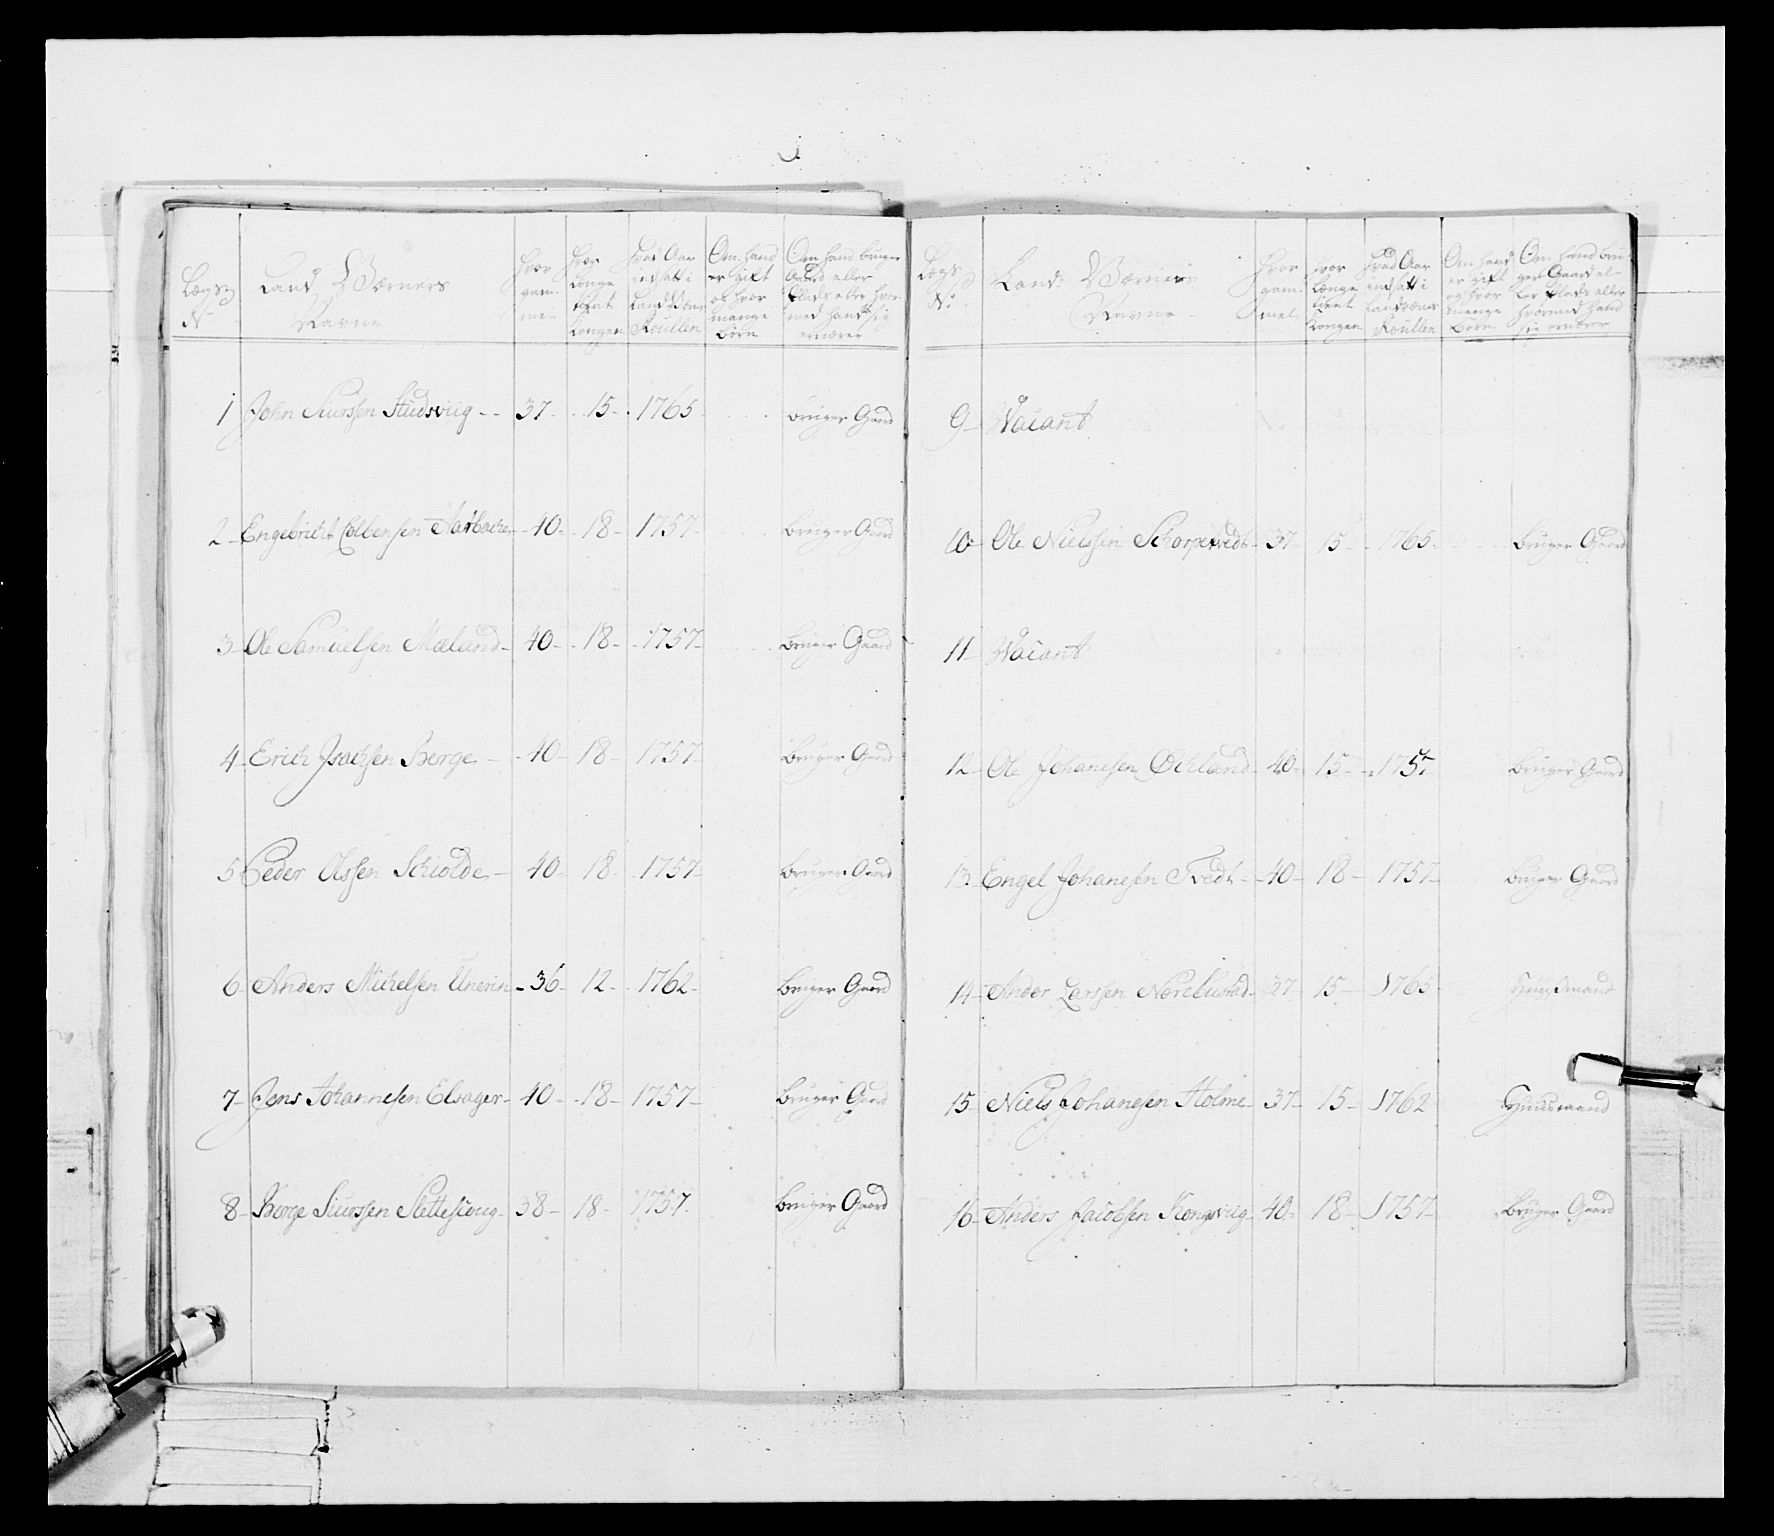 Lægs No
Land Værners Navne
Hvor gam- mel
Hvor Længe tient Kongen
Hvad Aar indsatt i Land Værns Roullen
Om hand er gift og hvor mange børn
Om hand bruger Gaard eller Plads eller hvor- med hand sig ernærer
1 John Siurssen Studsviig - - 37 - 15 - 1765 bruger Gaard
2 - Engebricht Colbensen Aarbache - 40 - 18 - 1757 - bruger Gaard
3 - Ole Samuelsen Mæland - 40 - 18 - 1757 - bruger Gaard
4 - Erich Isachsen Berge - 40 - 18 - 1757 bruger Gaard
5 Peder Olssen Schiolde - 40 - 18 - 1757 - bruger Gaard
6 - Anders Michelsen - 36 - 12 - 1762 - bruger Gaard
7 - Jens Johannesen Elsager - 40 - 18 - 1757 - bruger Gaard
8 - Børge Siurssen - 38 - 18 - 1757 - bruger Gaard
Lægs No
Land Værners Navne
Hvor gam- mel
hvor Længe tient Kongen
Hvad Aar indsatt i Landværns Roullen
Om hand er gift og hvor mange børn
Om hand bru- ger Gaard el- ler Plads eller hvormed hand sig ernærer
9 - Wacant
10 - Ole Nielssen Schorpetvedt - 37 - 15 - 1765 - bruger Gaard
11 - Wacant
12 - Ole Johanesen Øchland - 40 - 15 - 1757 bruger Gaard
13 - Engel Johanesen Tvedt - 40 - 18 - 1757 - bruger Gaard
14 - Ander Larssen - 37 - 15 - 1765 Huusmand
15 - Niels Johanesen Holme - 37 - 15 - 1762 Huusmand
16 - Anders Jacobsen Kongsviig - 40 - 18 - 1757 - bruger Gaard